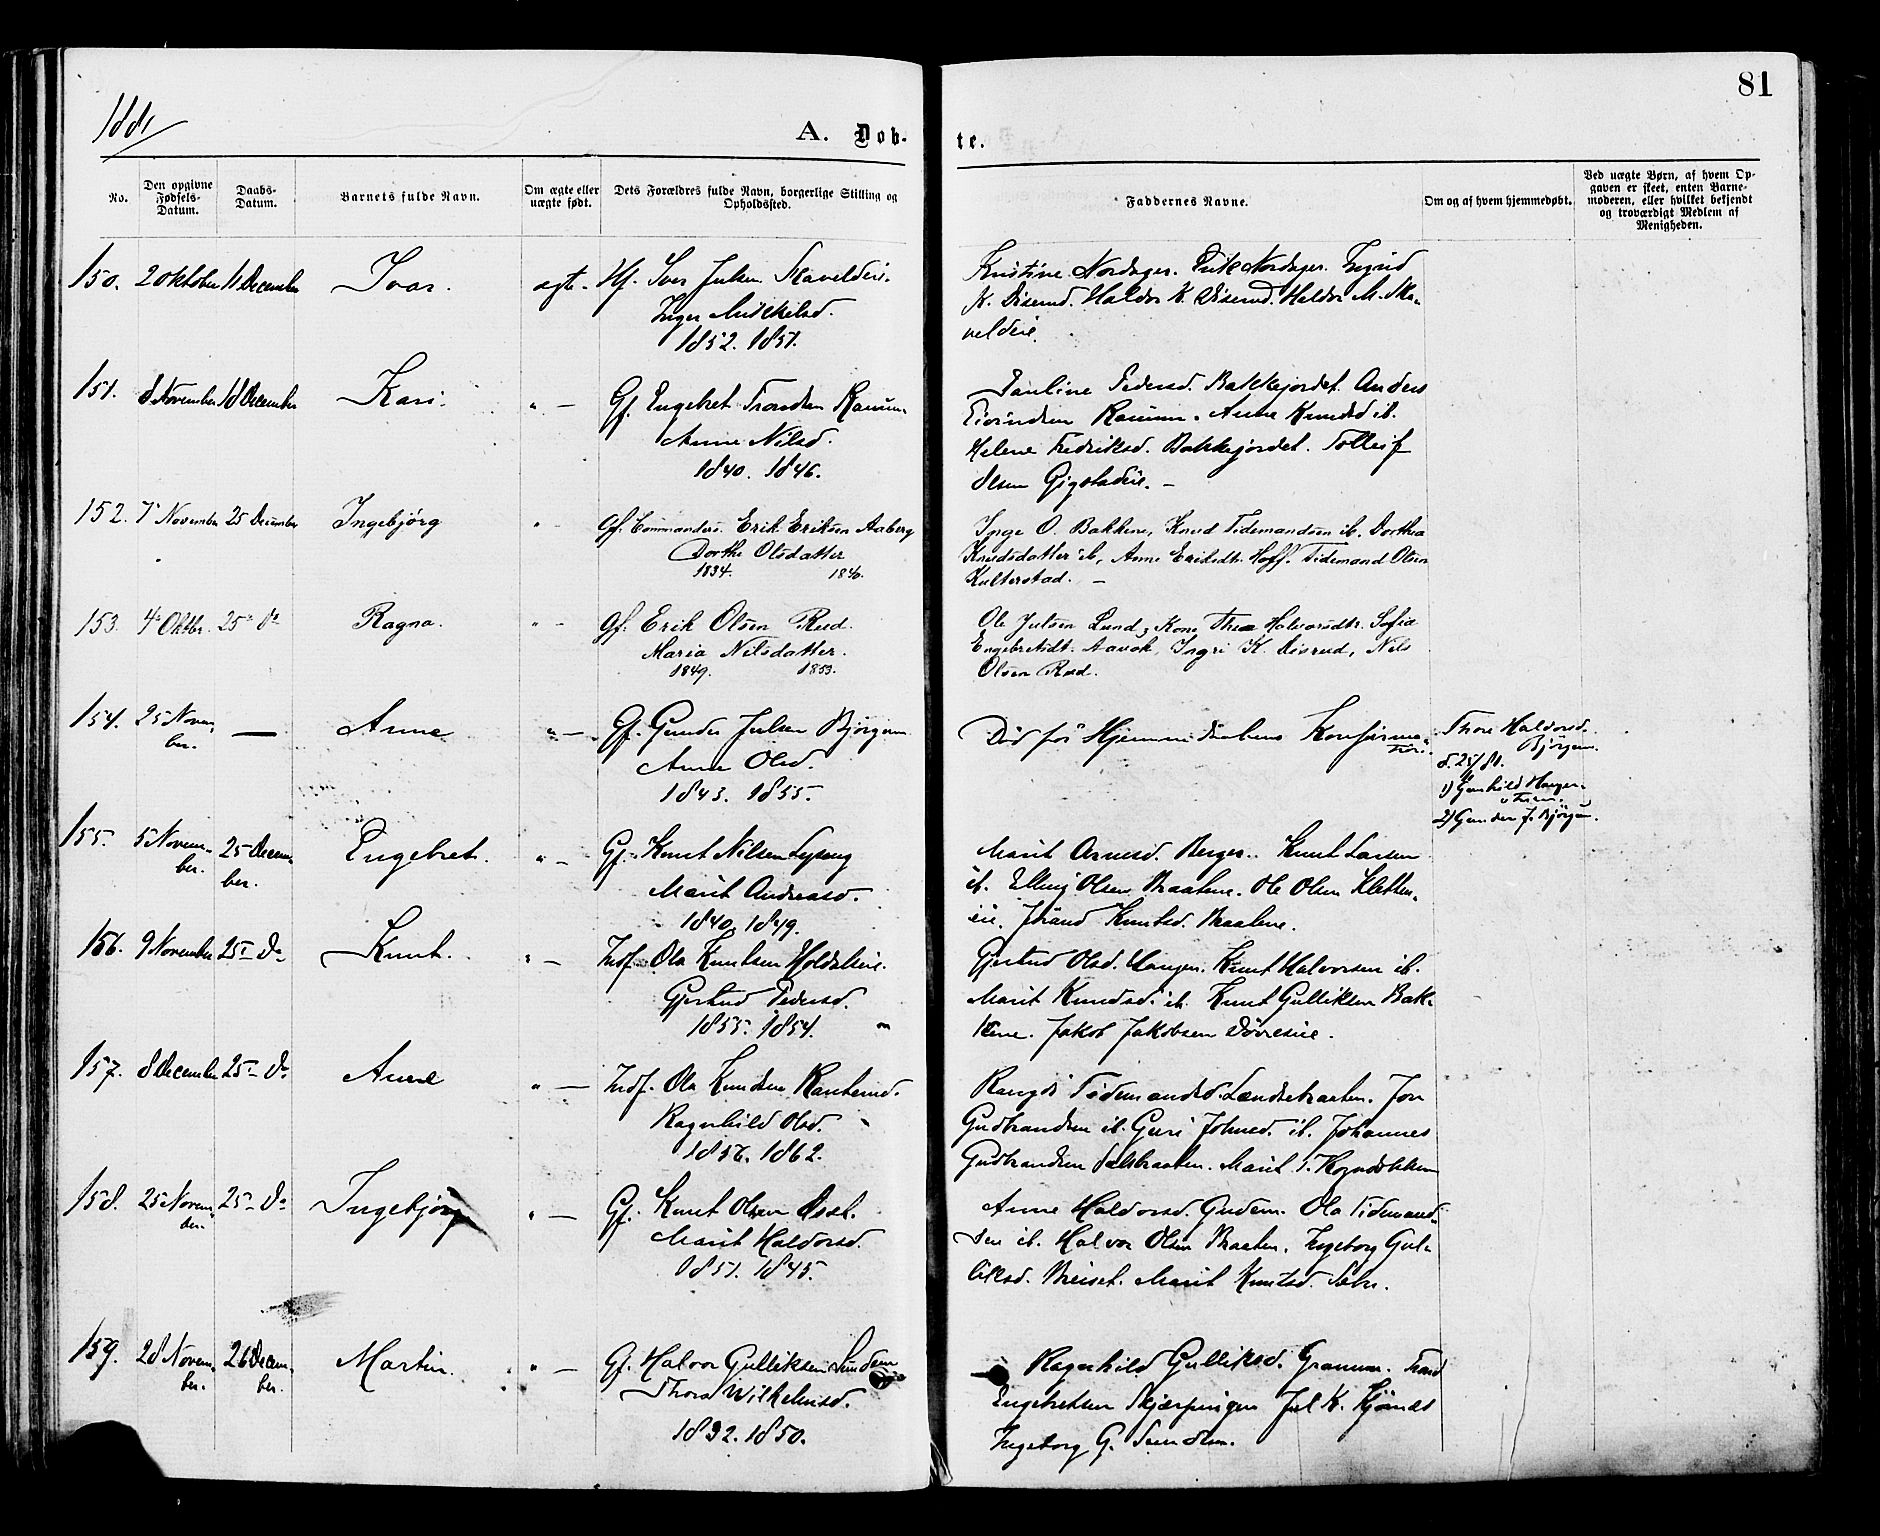 1881
81
A. Døb-
te.
No.
Den opgivne Fødsels-Datum.
Daabs-Datum.
Barnets fulde Navn.
Om ægte eller uægte født.
Dets Forældres fulde Navn, borgerlige Stilling og Opholdssted.
Faddernes Navne.
Om og af hvem hjemmedøbt.
Ved uægte Børn, af hvem Opgaven er skeet, enten Barnemoderen, eller hvilket bekjendt og troværdigt Medlem af Menigheden.
150. 2 Oktober 11 December Ivar. ægt. Hf. Iver Julsen
Inger Mikkelsd.
1852. 1851.
Kristine Nordager. Nordager. Ingrid
K. Disrud. Haldor K. Disrud. Haldor M. Ska-
veldeie.
151. 8 November 18 December Kari. " — Gf. Engebret Trondsen Ranum.
Anne Nilsd.
1840. 1846.
Pauline Pedersd. Bakkejordet. Anders
Eivindsen Ranum. Anne Knudsd ib.
Helene Fredriksd. Bakkejordet. Tolleif
Olsen Gigstadeie. —
152. 7 November 25 December Ingebjørg " — Gf. Commanders. Erik Eriksen Aaberg
Dorthe Olsdatter
1834. 1840.
Inge O. Bakkene, Knud Tidemandsen ib. Dorthea
Knudsdatter ib, Anne Eriksdtr. Hoff. Tidemand Olsen
Kulterstad. —
153. 4de Oktbr. 25 do Ragna. " — Gf. Erik Olsen Rud.
Maria Nilsdatter.
1849. 1853.
Ole Julsen Lund, Kone Thea Halvorsdtr. Sofia
Engebretsdt. Aavok, Ingri K. Disrud, Nils
Olsen Rud.
154. 25 Novem-
ber. — Anne " — Gf. Gunder Julsen Bjørgum
Anne Olsd.
1843. 1855.
Død før Hjemmedaabens Konfirma-
tion.
Thore Haldorsd.
Bjørgum.
1) Gunhild Haugen
2) Gunder J. Bjørgum.
155. 5 Novem-
ber. 25 Decem-
ber. Engebret. " — Gf. Knut Nilsen Lyseng
Marit Andreasd.
1840. 1849.
Marit Arnesd. Berger. Knut Larsen
ib. Elling Olsen Braatene. Ole Olsen Kletten-
eie. Jørand Knutsd. Braatene.
156. 9 November 25 do Knut. " — Indf. Ola Knutsen
Gjertrud Pedersd.
1855. 1854.
Gjertrud Olsd. Haugen. Knut Halvorsen ib.
Marit Knudsd. ib. Knut Gulliksen Bak-
kene. Jakob Jakobsen
157. 8 December 25 do Anne " — Indf. Ola Knudsen
Ragnhild Olsd.
1856. 1862.
Rangdi Tidemandsd. Jon
Gudbrandsen ib. Guri Johnsd. ib. Johannes
Gudbrandsen Marit T.
158. 25 Novem-
ber. 25 do Ingebjørg " — Gf. Knut Olsen
Marit Haldorsd.
1851. 1845.
Anne Haldorsd. Ola Tidemand-
sen ib. Halvor Olsen Braaten. Ingeborg Gul-
liksd. Marit Knutsd.
159. 28 Novem-
ber. 26 Decem-
ber. Martin. " — Gf. Halvor Gulliksen Sundem
Thora Wilhelmsd.
1832. 1850.
Ragnhild Gulliksd. Granum. Trond
Engebretsen Skjærpingen Jul K.
Ingeborg G. Sundem.